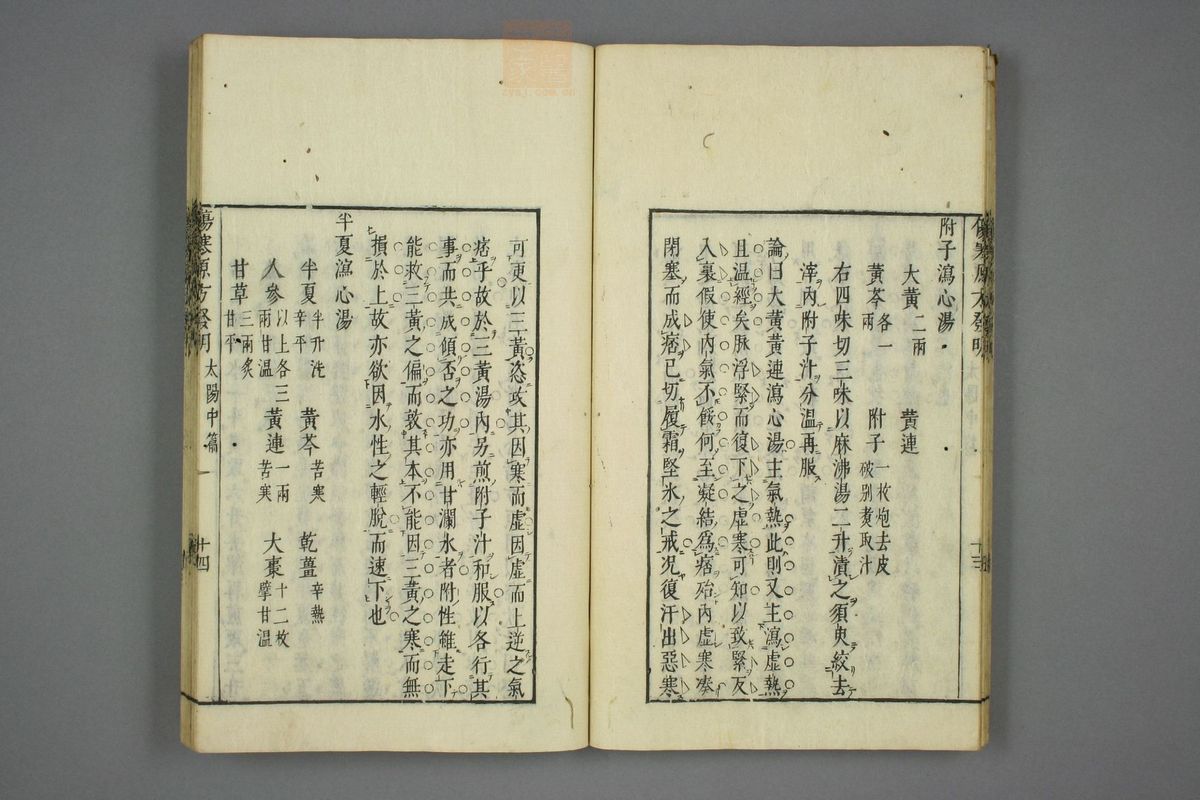 附子瀉心湯
大黃二兩 黃連
黃芩各一兩 附子一枚炮去皮破别煑取汁
右四味切三味以麻沸湯二升漬之須臾絞去
滓內附子汁分溫再服
論曰大黃黃連瀉心湯主氣熱此則又主瀉虛熱
且温經矣脉浮緊而復下之虛寒可知以致緊反
入裏假使內氣不餒何至凝結為痞殆內虛寒凑
閉塞而成痞已切履霜堅氷之戒况復汗出惡寒
可更以三黃恣攻其因寒而虛因虛而上逆之氣
痞乎故於三黃湯內另煎附子汁和服以各行其
事而共成傾否之功亦用甘瀾水者附性雖走下
能救三黃之偏而敦其本不能因三黃之寒而無
損於上故亦欲因水性之輕脫而速下也
半夏瀉心湯
半夏半升洗辛平 黃芩苦寒 乾薑辛熱
人參以上各三兩甘溫 黃連一兩苦寒 大棗十二枚擘甘溫
甘草三兩炙甘平
傷寒原方發明 太陽中篇 十四